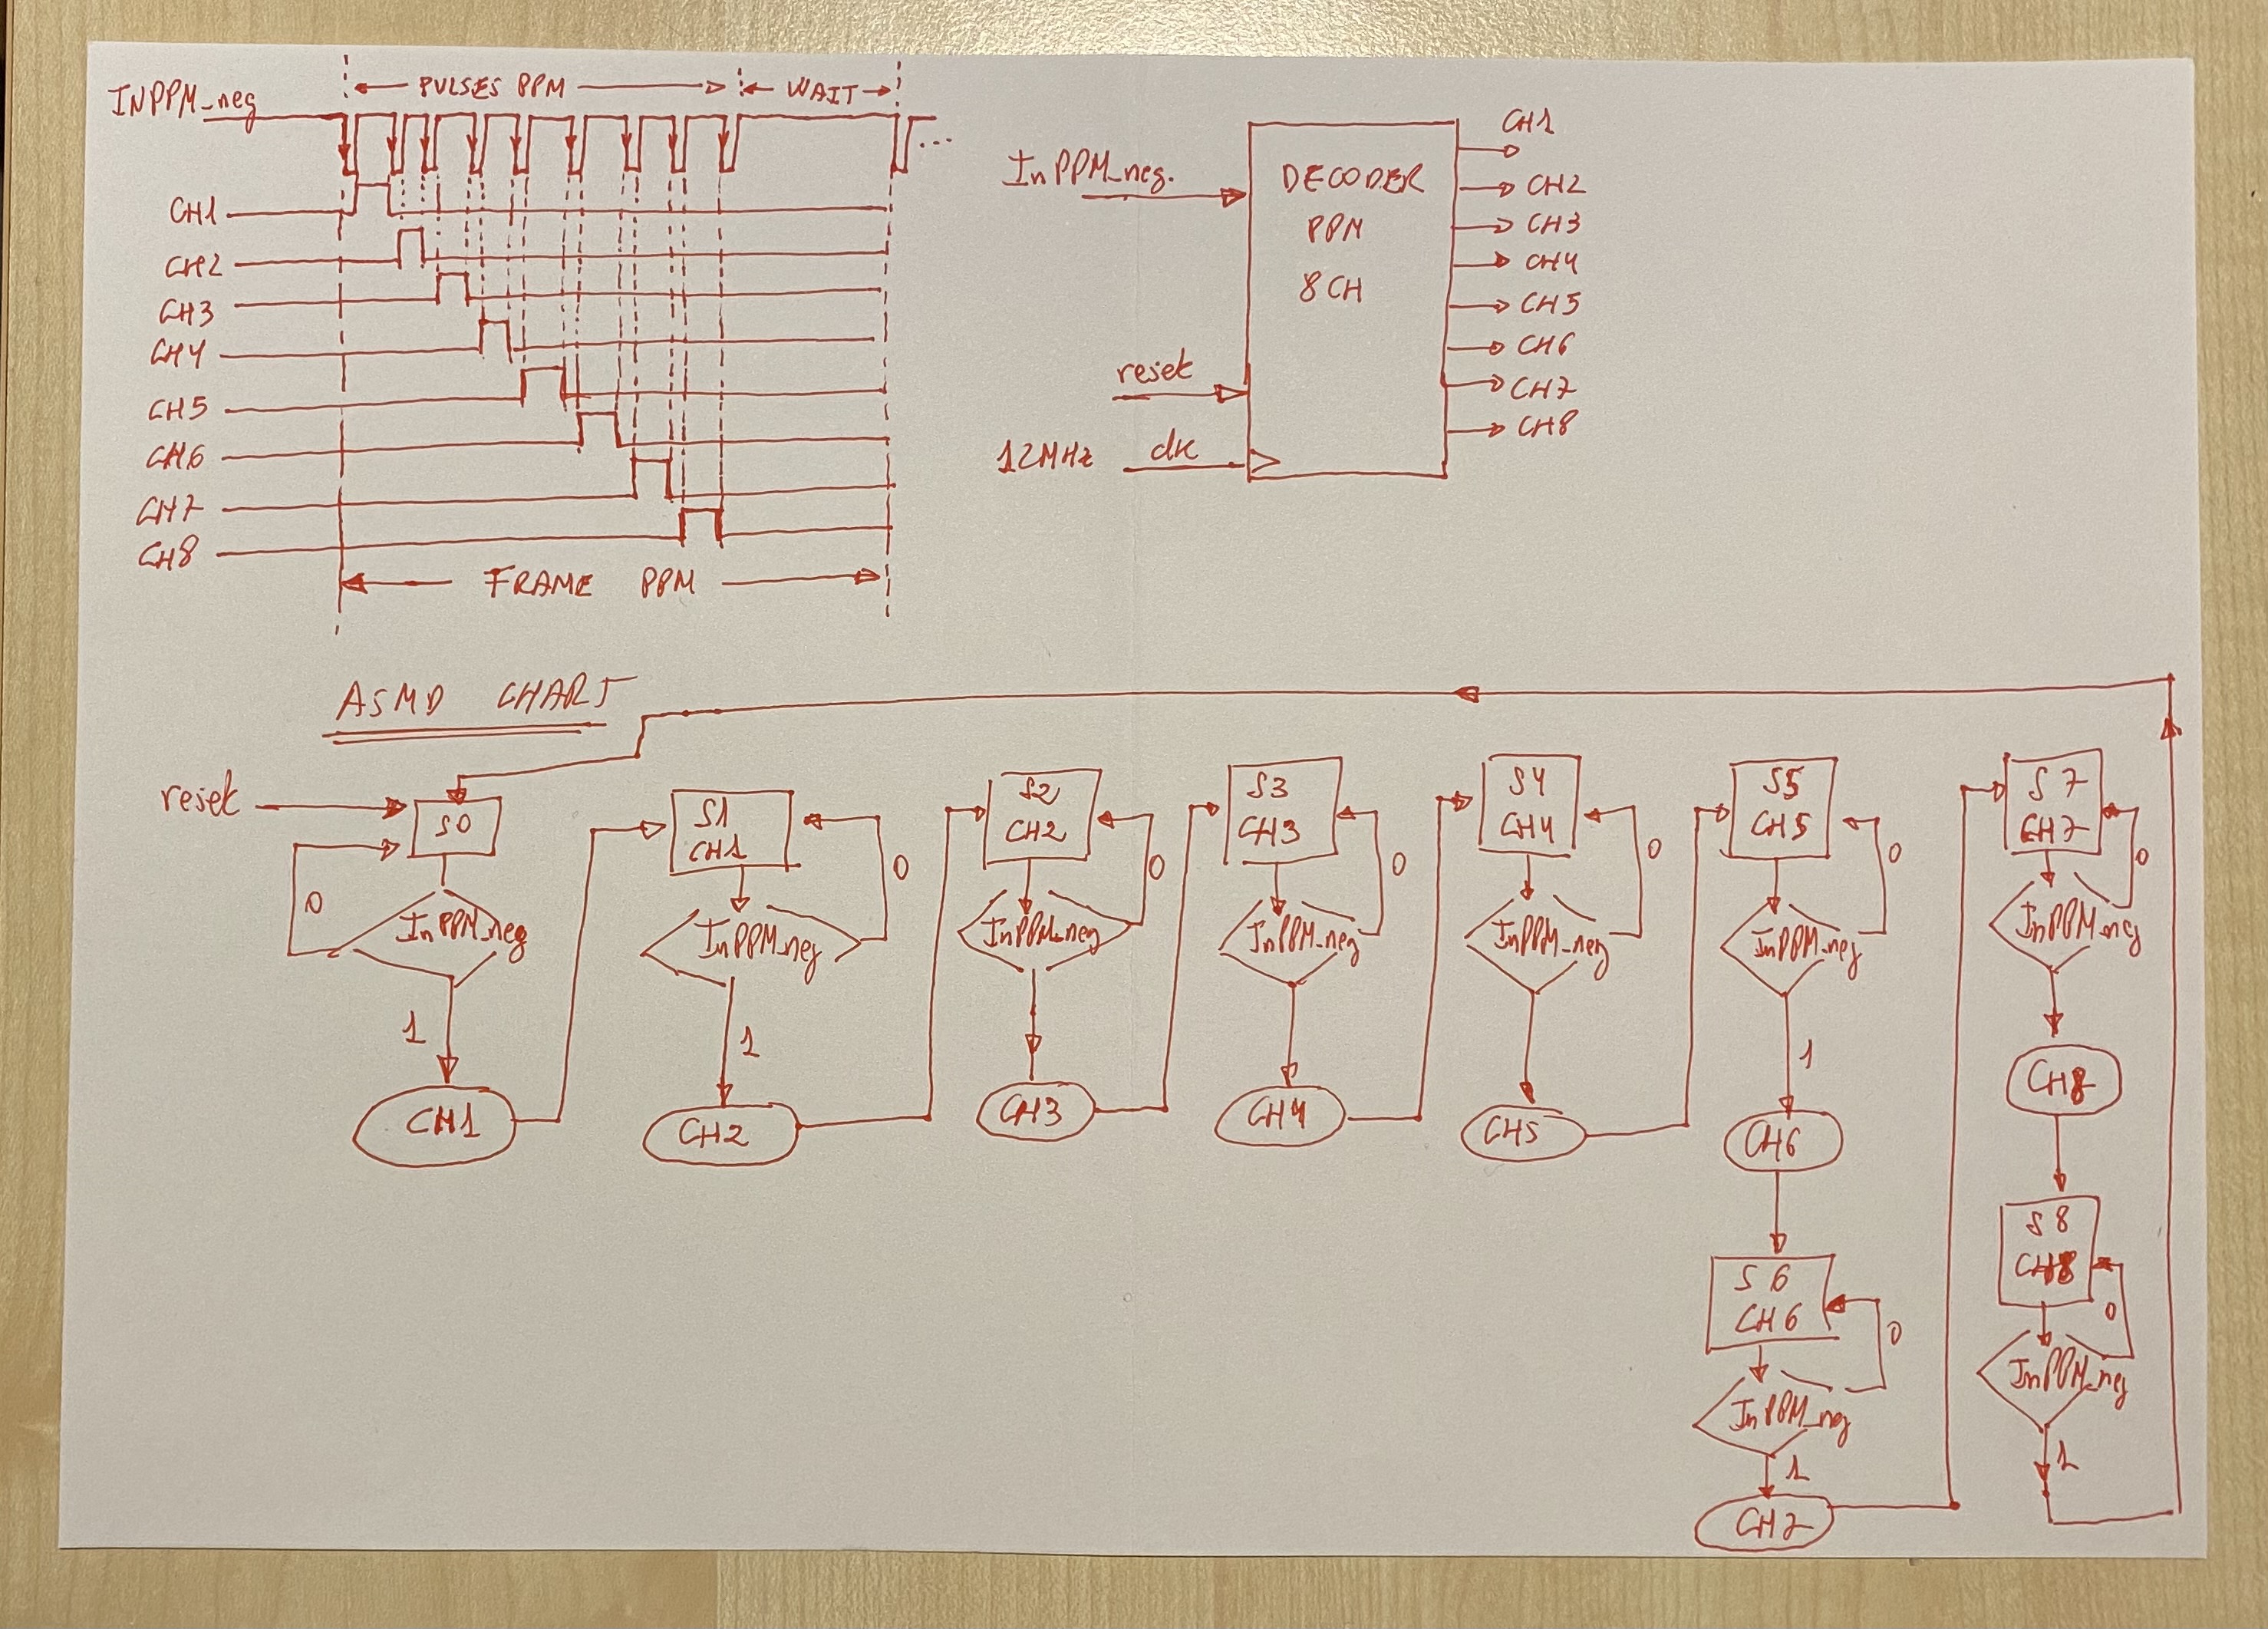 INPPM_neg
PULSES PPM
WAIT
...
CH1
CH2
CH3
CH4
CH5
CH6
CH7
CH8
FRAME PPM
InPPM_neg.
reset
12MHz clk
DECODER
PPM
8CH
CH1
CH2
CH3
CH4
CH5
CH6
CH7
CH8
ASMD CHART
reset
S0
0
InPPM_neg
1
CH1
S1
CH1
0
InPPM_neg
1
CH2
S2
CH2
0
InPPM_neg
CH3
S3
CH3
0
InPPM_neg
CH4
S4
CH4
0
InPPM_neg
CH5
S5
CH5
0
InPPM_neg
1
CH6
S6
CH6
0
InPPM_neg
1
CH7
S7
CH7
0
InPPM_neg
CH8
S8
CH8
0
InPPM_neg
1